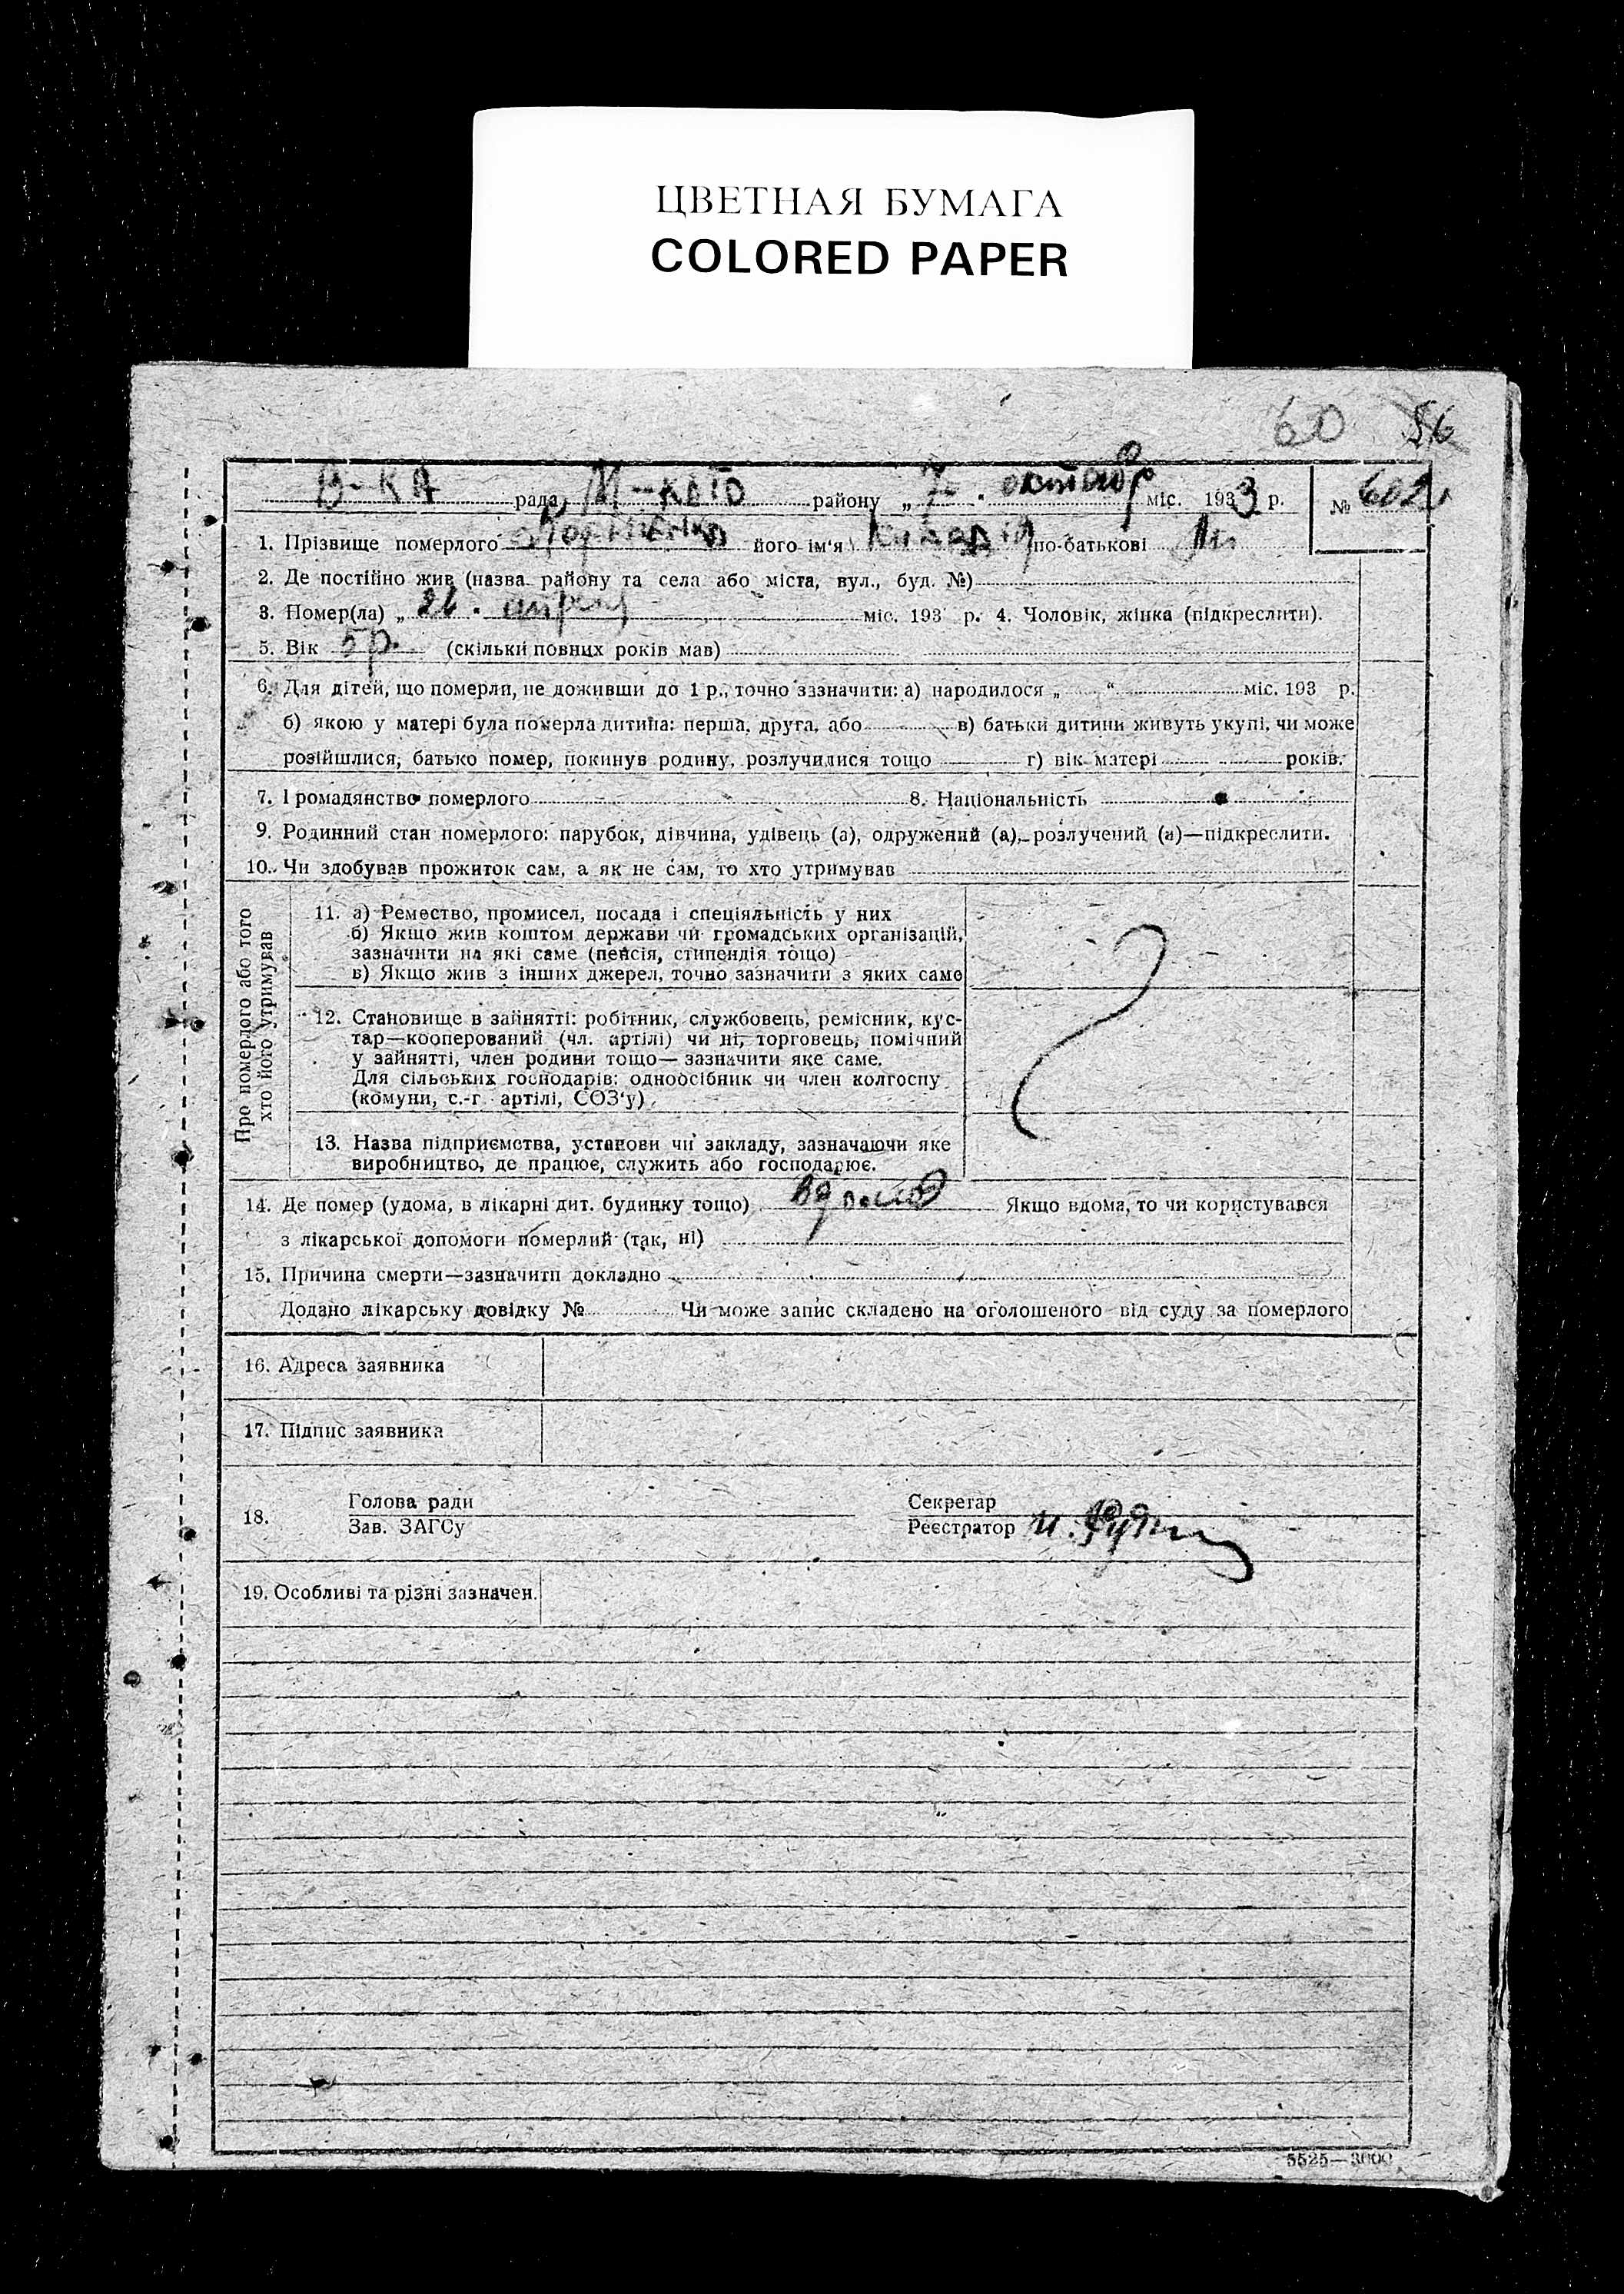 ЦВЕТНАЯ БУМАГА
COLORED PAPER
60 56
В-КА рада, М-КОГО району „ 7 " октябр міс. 1933 р. № 602
1. Прізвище померлого його ім'я по-батькові
2. Де постійно жив (назва району та села або міста, вул., буд. №)
3. Помер(ла) „ 26 " апреля міс. 193 р. 4. Чоловік, жінка (підкреслити).
5. Вік 5 р. (скільки повних років мав)
6. Для дітей, що померли, не доживши до 1 р., точно зазначити: а) народилося „ “ міс. 193 р.
б) якою у матері була померла дитина: перша, друга, або в) батьки дитини живуть укупі, чи може
розійшлися, батько помер, покинув родину, розлучилися тощо г) вік матері років.
7. Громадянство померлого 8. Національність
9. Родинний стан померлого: парубок, дівчина, удівець (а), одружений (а), розлучений (а)—підкреслити.
10. Чи здобував прожиток сам, а як не сам, то хто утримував
Про померлого або того
хто його утримував
11. а) Ремество, промисел, посада і спеціяльність у них
б) Якщо жив коштом держави чи громадських організацій,
зазначити на які саме (пенсія, стипендія тощо)
в) Якщо жив з інших джерел, точно зазначити з яких саме
12. Становище в зайнятті: робітник, службовець, ремісник, кус-
тар—кооперований (чл. артілі) чи ні, торговець, помічний
у зайнятті, член родини тощо— зазначити яке саме.
Для сільських господарів: одноосібник чи член колгоспу
(комуни, с.-г. артілі, СОЗ'у)
13. Назва підприємства, установи чи закладу, зазначаючи яке
виробництво, де працює, служить або господарює.
14. Де помер (удома, в лікарні дит. будинку тощо) Якщо вдома, то чи користувався
з лікарської допомоги померлий (так, ні)
15. Причина смерти—зазначити докладно
Додано лікарську довідку № Чи може запис складено на оголошеного від суду за померлого
16. Адреса заявника
17. Підпис заявника
18. Голова ради Секретар
Зав. ЗАГСу Реєстратор
19. Особливі та різні зазначен.
5525—3000